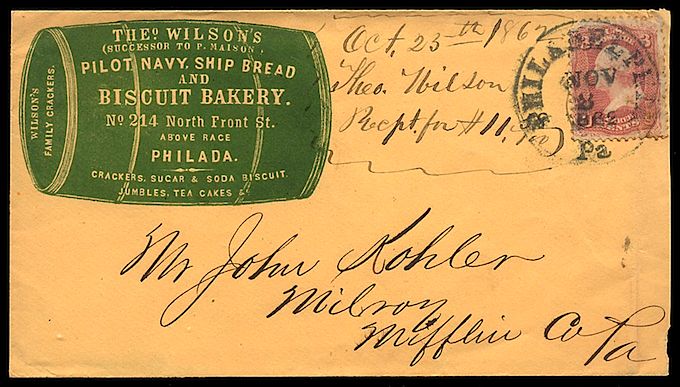 THEO. WILSON'S
(SUCCESSOR TO P. MAISON,)
PILOT, NAVY, SHIP BREAD
AND
BISCUIT BAKERY.
No 214 North Front St.
ABOVE RACE
PHILADA.
CRACKERS, SUGAR & SODA BISCUIT.
JUMBLES, TEA CAKES &c
WILSON'S
FAMILY CRACKERS.
Oct. 25th 1862
Theo. Wilson
Recpt. for $11.
PHILADELPHIA
NOV
Pa
CENTS
Mr John Kohler
Milroy
Mifflin Co Pa